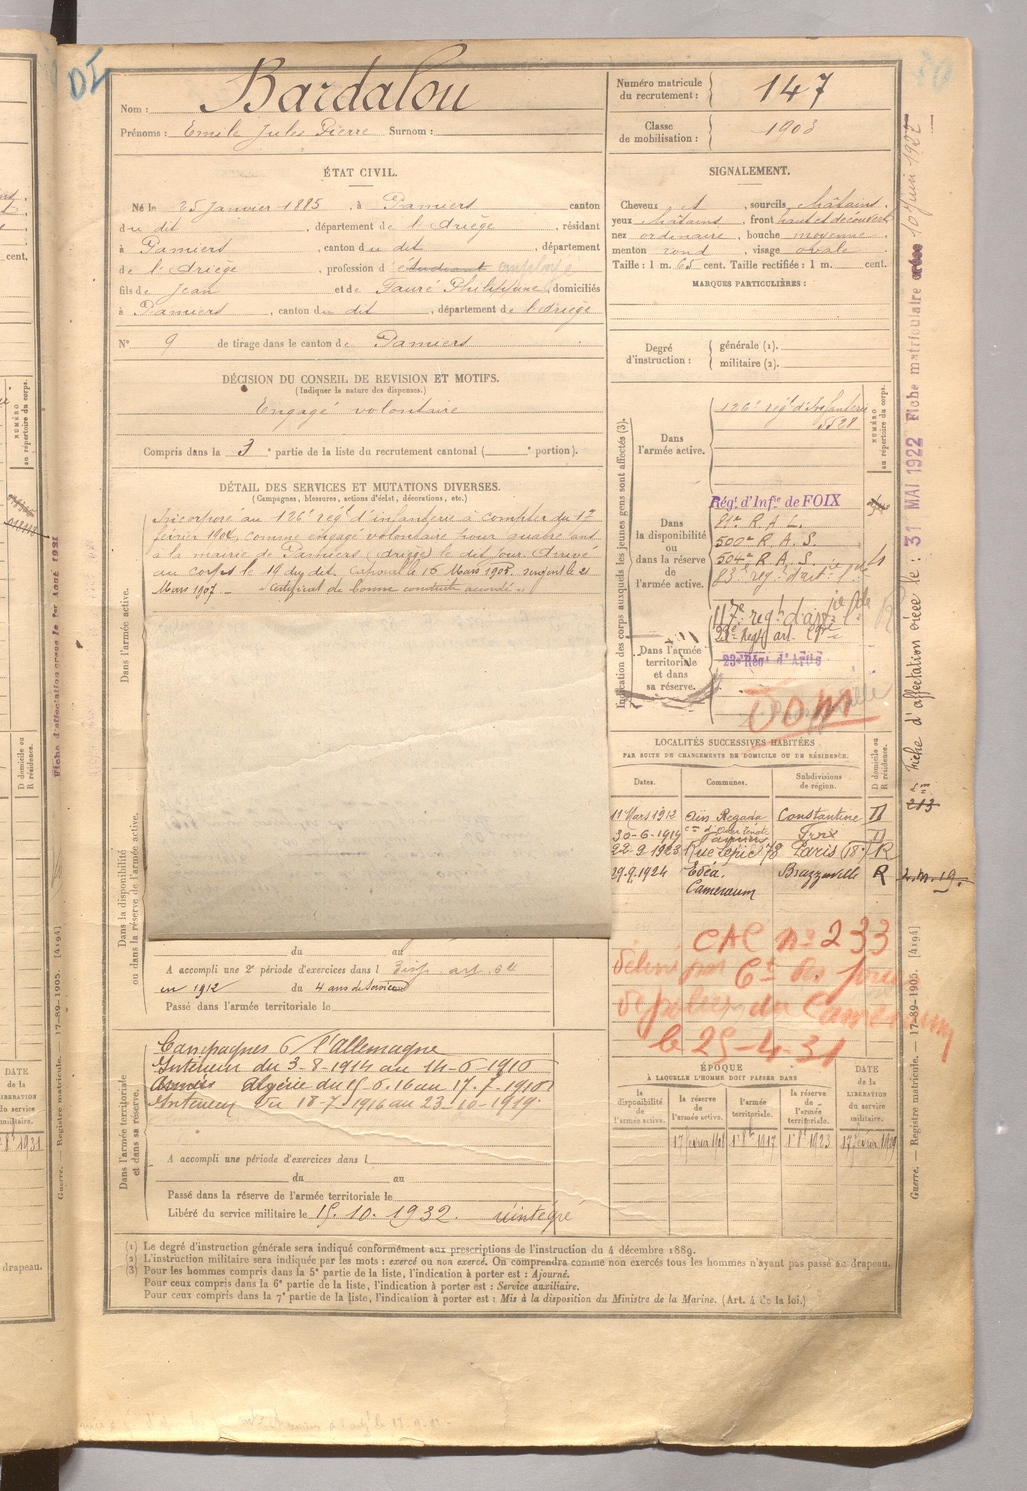 DI
Nom : Bardalou
Prénoms : Emile Jules Pierre Surnom :
ÉTAT CIVIL.
Né le 25 Janvier 1885, à Pamiers canton
du dit, département de l'Ariège, résidant
à Pamiers, canton du dit, département
de l'Ariège, profession d'étudiant employé
fils de Jean et de Fauré Philippine, domiciliés
à Pamiers, canton du dit, département de l'Ariège
N° 9 de tirage dans le canton de Pamiers
DÉCISION DU CONSEIL DE REVISION ET MOTIFS.
(Indiquer la nature des dispenses.)
Engagé volontaire
Compris dans la 3e partie de la liste du recrutement cantonal ( e portion).
DÉTAIL DES SERVICES ET MUTATIONS DIVERSES.
(Campagnes, blessures, actions d'éclat, décorations, etc.)
Dans l'armée active.
Incorporé au 126e régt d'infanterie à compter du 1er
février 1904, comme engagé volontaire pour quatre ans
à la mairie de Pamiers (Ariège) le dit jour. Arrivé
au corps le 19 du dit. Caporal le 15 Mars 1905. sergent le 21
Mars 1907. Certificat de bonne conduite accordé.
Dans la disponibilité
ou dans la réserve de l'armée active.
du au
A accompli une 2e période d'exercices dans l
en 1912 du 4 ans de service
Passé dans l'armée territoriale le
Dans l'armée territoriale
et dans sa réserve.
Campagnes c/ l'Allemagne
Intérieur du 3-8-1914 au 14-6-1916
Armées Algérie du 15.6.16 au 17.7.1916
Intérieur du 18-7-1916 au 23-10-1919.
A accompli une période d'exercices dans l
du au
Passé dans la réserve de l'armée territoriale le
Libéré du service militaire le 15.10.1932. réintégré
Numéro matricule
du recrutement : 147
Classe
de mobilisation : 1903
SIGNALEMENT.
Cheveux et, sourcils châtains,
yeux châtains, front haut et découvert
nez ordinaire, bouche moyenne,
menton rond, visage ovale
Taille : 1 m. 65 cent. Taille rectifiée : 1 m. cent.
MARQUES PARTICULIÈRES :
Degré
d'instruction :
générale (1).
militaire (2).
Indication des corps auxquels les jeunes gens sont affectés (3).
NUMÉRO
au répertoire du corps.
Dans
l'armée active.
126e régt d'Infanterie
5528
Dans
la disponibilité
ou
dans la réserve
de
l'armée active.
Régt d'Infie de FOIX
81e R A L.
500e R. A. S.
504e R. A. S.
Dans l'armée
territoriale
et dans
sa réserve.
117e régt d'art
23e Régt d'Artie
Dom
LOCALITÉS SUCCESSIVES HABITÉES
PAR SUITE DE CHANGEMENTS DE DOMICILE OU DE RÉSIDENCE.
Dates. Communes. Subdivisions de région. D domicile ou R résidence.
11 Mars 1912 Aïn Regada Constantine D
30-6-1919 Pamiers Foix D
22-9-1923 Rue Lepic 78 Paris (18e) R
29.9.1924 Edéa Brazzaville R
Cameroun
CAC n° 233
délivré par Ct des forces
de police du Cameroun
le 25-4-31
ÉPOQUE
À LAQUELLE L'HOMME DOIT PASSER DANS
DATE
de la
LIBÉRATION
du service
militaire.
la disponibilité de l'armée active.
la réserve de l'armée active.
l'armée territoriale.
la réserve de l'armée territoriale.
1er 8bre 1917
(1) Le degré d'instruction générale sera indiqué conformément aux prescriptions de l'instruction du 4 décembre 1889.
(2) L'instruction militaire sera indiquée par les mots : exercé ou non exercé. On comprendra comme non exercés tous les hommes n'ayant pas passé au drapeau.
(3) Pour les hommes compris dans la 5e partie de la liste, l'indication à porter est : Ajourné.
Pour ceux compris dans la 6e partie de la liste, l'indication à porter est : Service auxiliaire.
Pour ceux compris dans la 7e partie de la liste, l'indication à porter est : Mis à la disposition du Ministre de la Marine. (Art. 4 de la loi.)
Fiche d'affectation créée le : 31 MAI 1922 Fiche matriculaire créée 10 Juin 1922
213
Guerre. — Registre matricule. — 17-89-1905. [4194]
Fiche d'affectation créée le 1er Août 1921
Guerre. — Registre matricule. — 17-89-1905. [4194]
cent.
NUMÉRO
au répertoire du corps.
D domicile ou
R résidence.
DATE
de la
LIBÉRATION
du service
militaire.
drapeau.